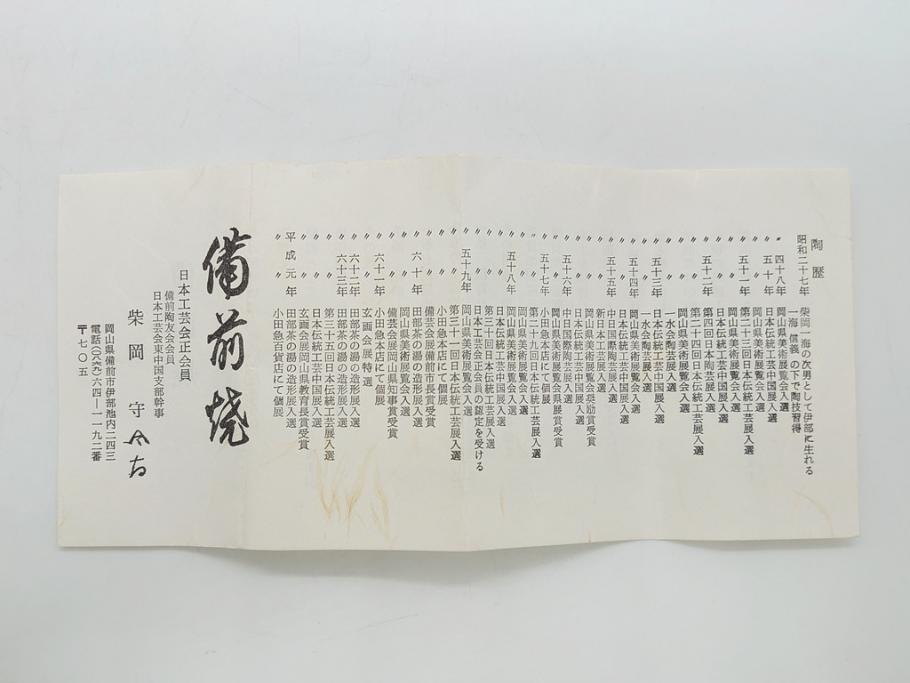 陶歴
昭和二十七年 柴岡一海の次男として伊部に生れる
一海 信義の下で陶技習得
〃 四十八年 岡山県美術展覧会入選
〃 五十年 日本伝統工芸中国展入選
〃 〃 岡山県美術展覧会入選
〃 五十一年 第二十三回日本伝統工芸展入選
〃 〃 岡山県美術展覧会入選
〃 〃 日本伝統工芸中国展入選
〃 五十二年 第四回日本陶芸展入選
〃 〃 第二十四回日本伝統工芸展入選
〃 〃 岡山県美術展覧会入選
〃 〃 一水会陶芸展入選
〃 五十三年 日本伝統工芸中国展入選
〃 〃 一水会陶芸展入選
〃 五十四年 岡山県美術展覧会入選
〃 〃 日本伝統工芸中国展入選
〃 五十五年 中日国際陶芸展入選
〃 〃 新日本工芸展入選
〃 〃 岡山県美術展覧会県展奨励賞受賞
〃 〃 日本伝統工芸中国展入選
〃 五十六年 中日国際陶芸展入選
〃 〃 岡山県美術展覧会県展賞受賞
〃 五十七年 小田急本店にて個展
〃 〃 第二十九回日本伝統工芸展入選
〃 〃 岡山県美術展覧会入選
〃 五十八年 岡山県美術展覧会入選
〃 〃 日本伝統工芸中国展入選
〃 〃 第三十回日本伝統工芸展入選
〃 〃 日本工芸会正会員の認定を受ける
〃 五十九年 岡山県美術展覧会入選
〃 〃 第三十一回日本伝統工芸展入選
〃 〃 小田急本店にて個展
〃 〃 備芸会展備前市長賞受賞
〃 六十年 田部茶の湯の造形展入選
〃 〃 岡山県美術展覧会入選
〃 〃 備芸会展岡山県知事賞受賞
〃 六十一年 小田急本店にて個展
〃 〃 玄画会展特選
〃 六十二年 田部茶の湯の造形展入選
〃 六十三年 田部茶の湯の造形展入選
〃 〃 第三十五回日本伝統工芸展入選
〃 〃 日本伝統工芸中国展入選
〃 〃 玄画会展岡山県教育長賞受賞
平成元年 田部茶の湯の造形展入選
〃 〃 小田急百貨店にて個展
備前焼
日本工芸会正会員
備前陶友会会員
日本工芸会東中国支部幹事
柴岡 守
岡山県備前市伊部池内二四三
電話(〇八六九)六四―一一九二番
〒七〇五